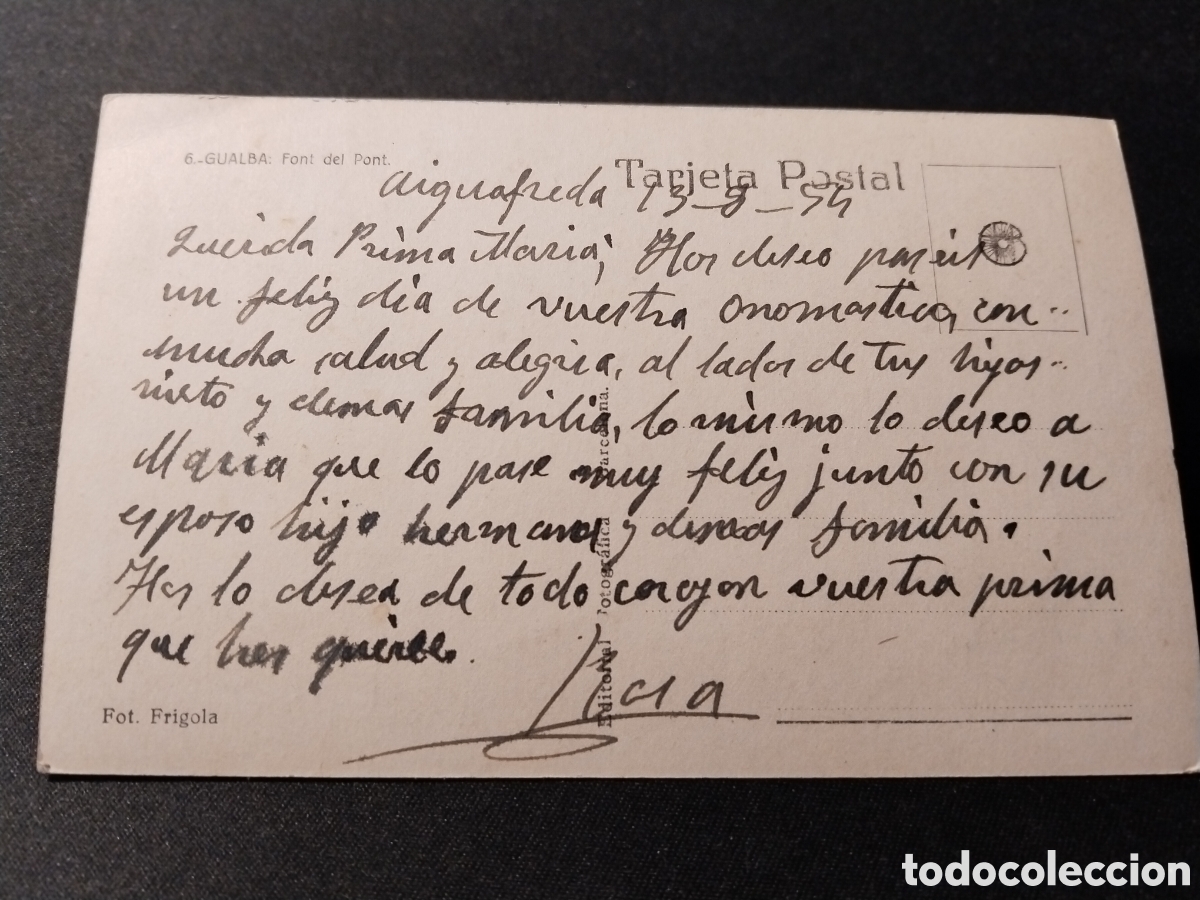 6.-GUALBA: Font del Pont.
Tarjeta Postal
Aiguafreda 13-8-54
Querida Prima Maria, Hos deseo paseis
un feliz dia de vuestra Onomastica, con
mucha salud y alegria, al lados de tus hijos
nieto y demas familia, lo mismo lo deseo a
Maria que lo pase muy feliz junto con su
esposo hijo hermanos y demas familia.
Hos lo desea de todo corazon vuestra prima
que hos quiere.
Editorial Fotográfica Barcelona.
Fot. Frigola
todocoleccion